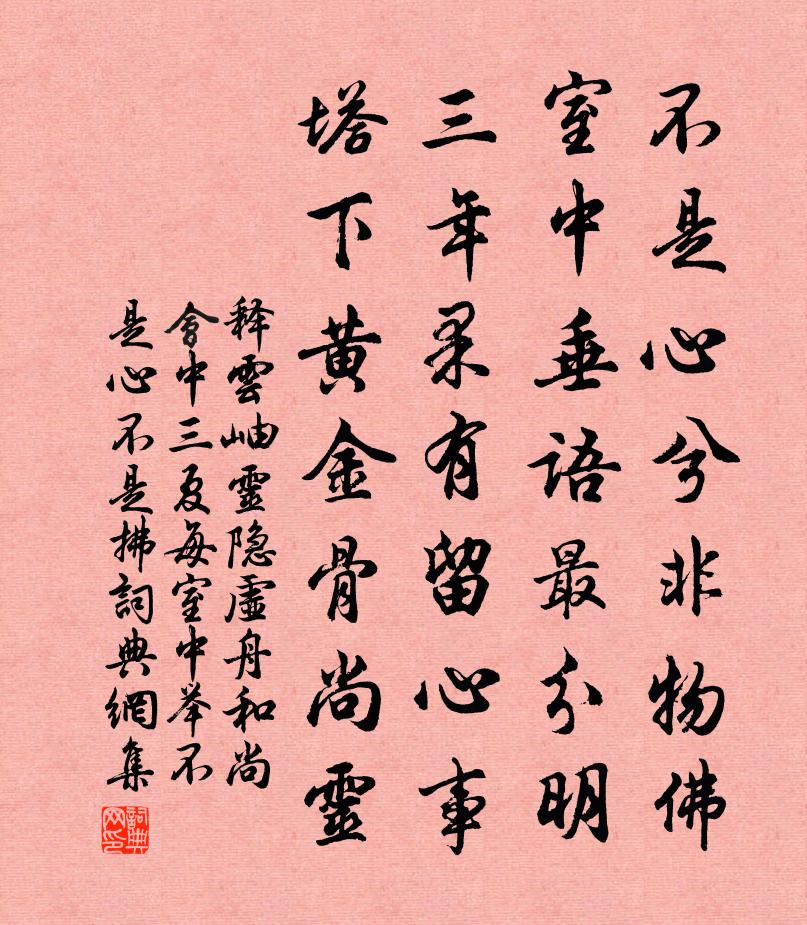 不是心兮非物佛
室中垂语最分明
三年果有留心事
塔下黄金骨尚靈
释雲岫靈隐虚舟和尚
會中三夏每室中举不
是心不是拂詞典網集
詞典网印